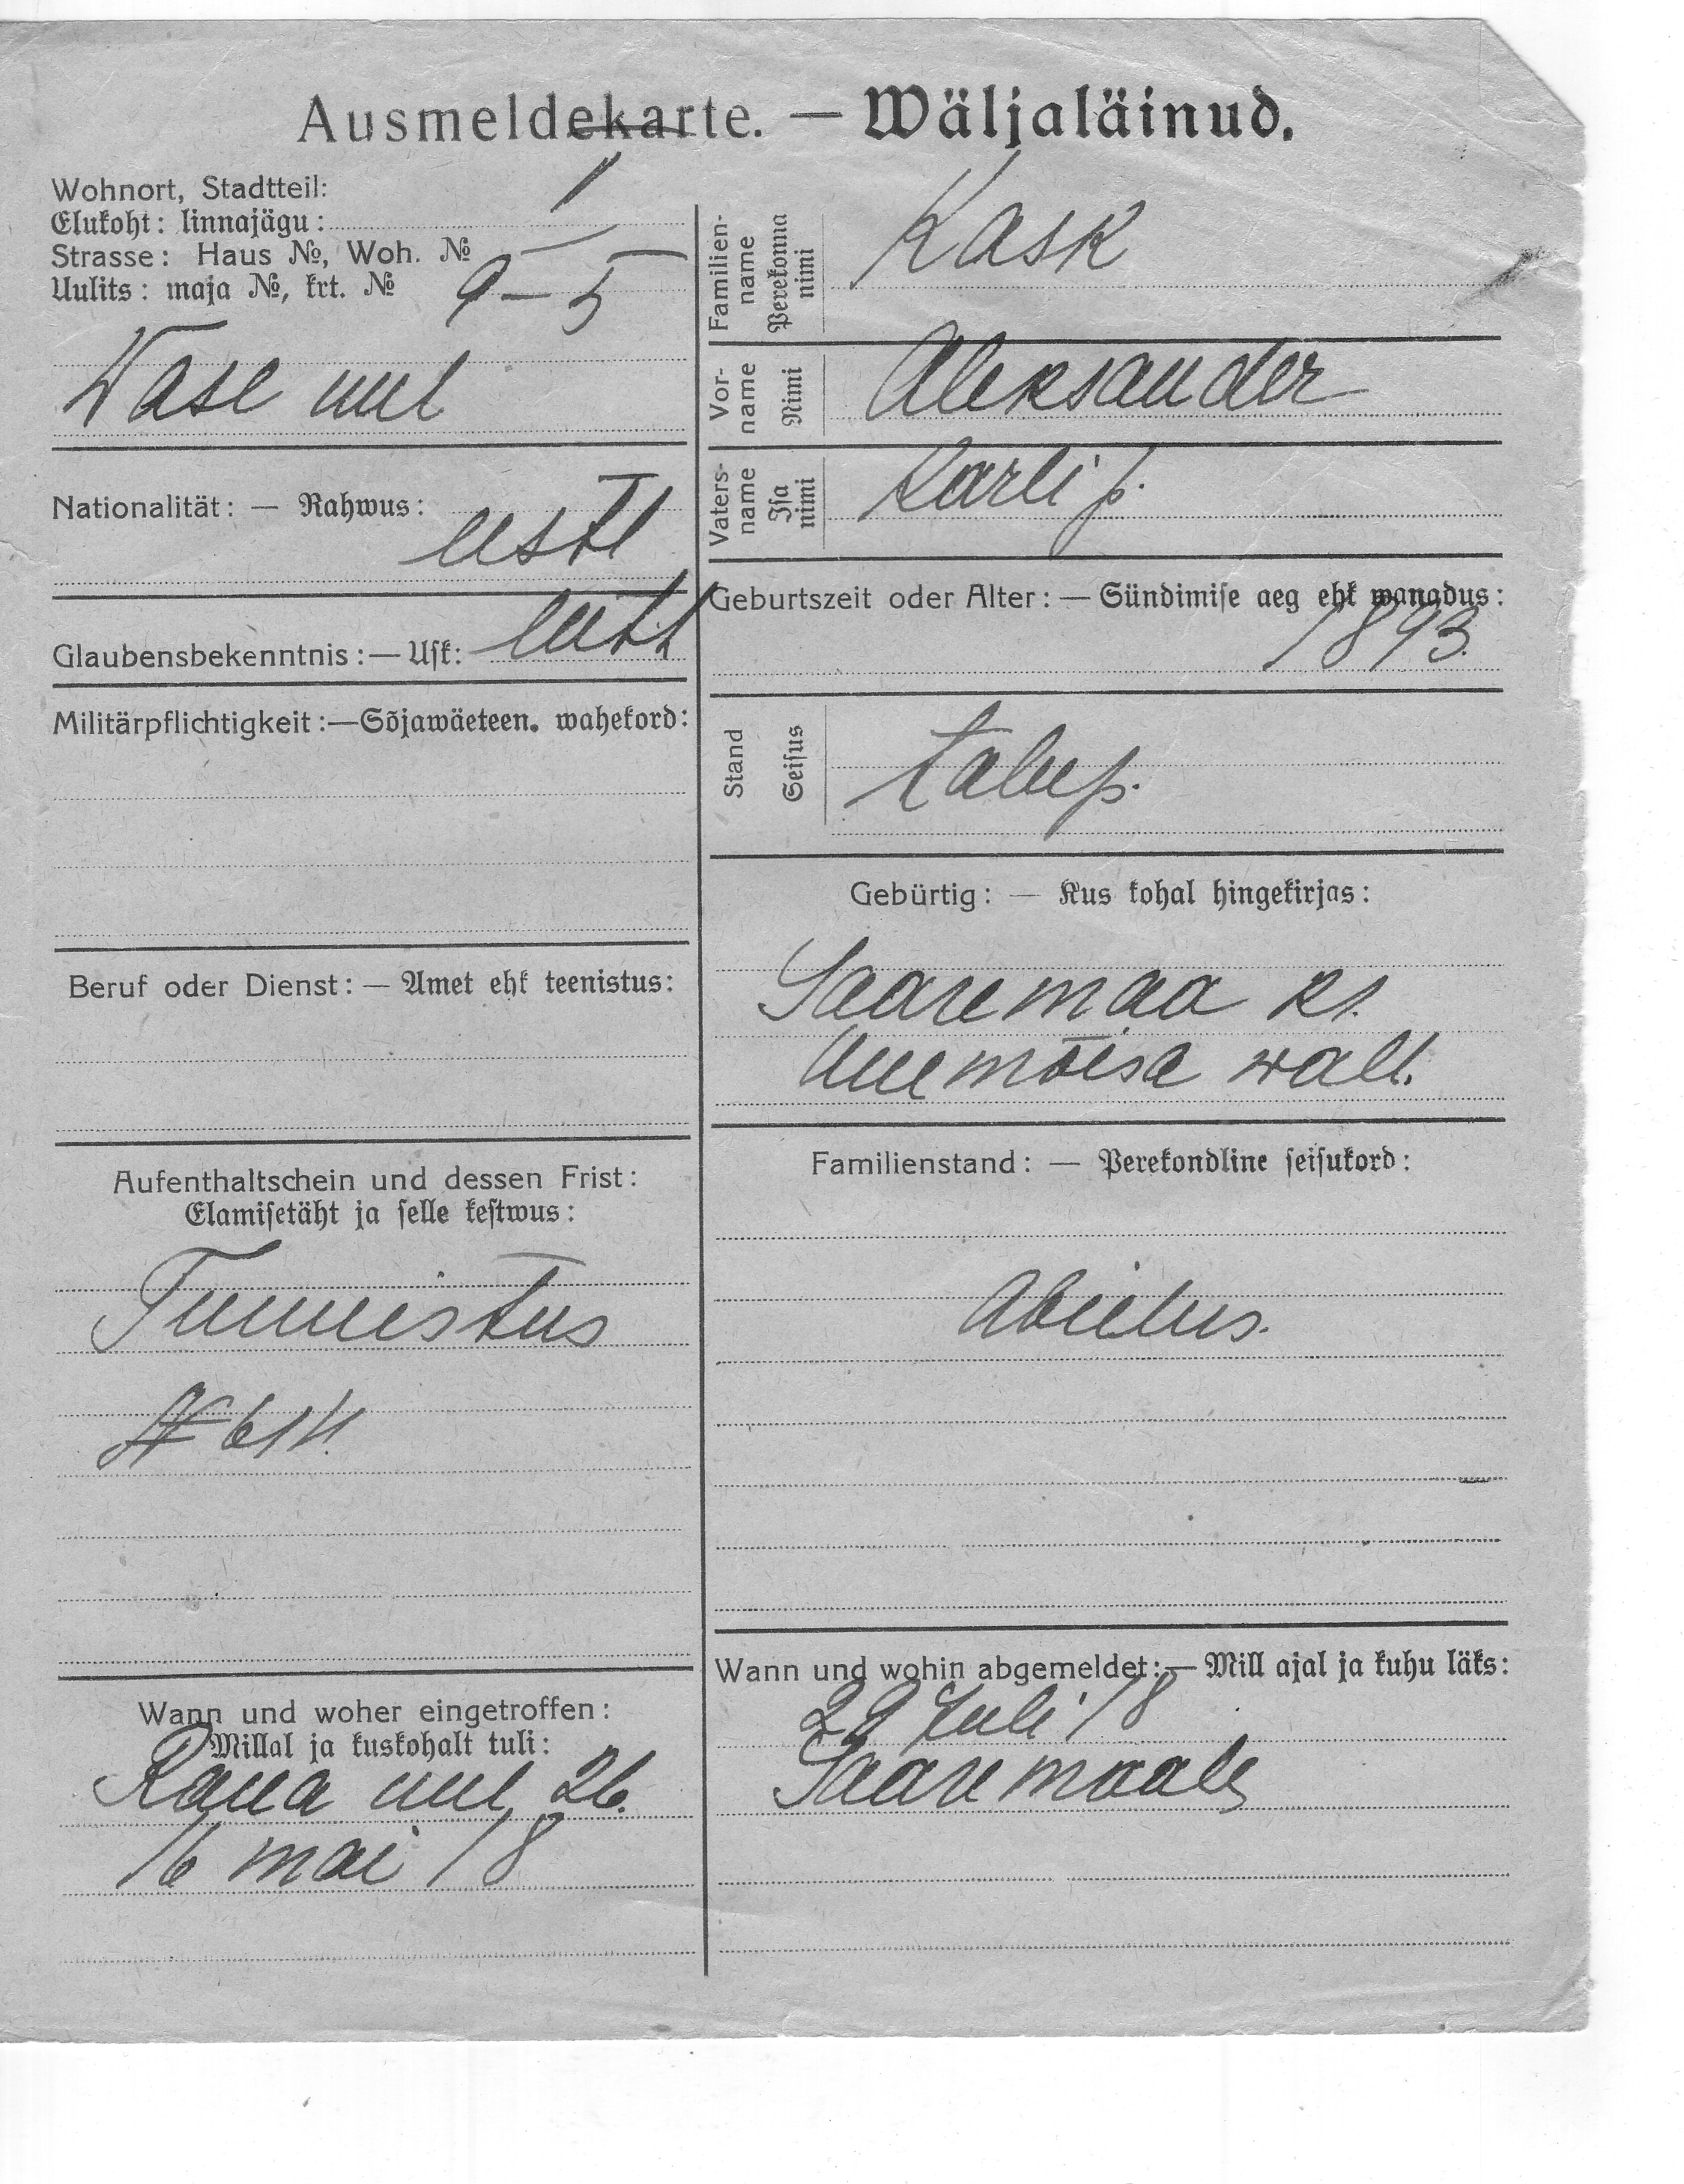 Ausmeldekarte. — Wäljaläinud.
Wohnort, Stadtteil:
Elukoht: linnajagu: 1
Strasse: Haus №, Woh. №
Uulits: maja №, krt. № 9-5
Wase uul
Nationalität: — Rahwus:
eestl
Glaubensbekenntnis:— Usk: lutt
Militärpflichtigkeit:—Sõjawäeteen. wahekord:
Beruf oder Dienst: — Amet ehk teenistus:
Aufenthaltschein und dessen Frist:
Elamisetäht ja selle kestwus:
Tunnistus
№ 614.
Wann und woher eingetroffen:
Millal ja kuskohalt tuli:
Raua uul 26.
16 mai 18
Familien-
name
Perekonna
nimi
Kask
Vor-
name
Nimi
Aleksander
Vaters-
name
Isa
nimi
Karli p.
Geburtszeit oder Alter: — Sündimise aeg ehk wanadus:
1893.
Stand
Seisus
talup.
Gebürtig: — Kus kohal hingekirjas:
Saaremaa kr.
Uuemõisa wall.
Familienstand: — Perekondline seisukord:
Abielus.
Wann und wohin abgemeldet:— Mill ajal ja kuhu läks:
29 Juli 18
Saaremaale